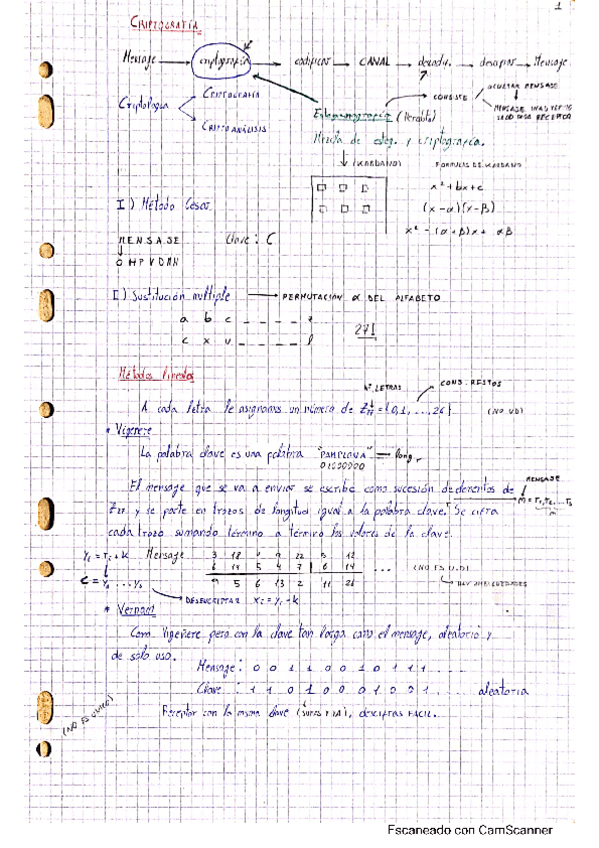 1
CRIPTOGRAFÍA
Mensaje → criptografía → codificar → CANAL → decodif. → descifrar → Mensaje
Criptología
CRIPTOGRAFÍA
CRIPTOANÁLISIS
Esteganografía (Herodoto)
CONSISTE
OCULTAR MENSAJE
MENSAJE
RECEPTOR
Mezcla de esteg. y criptografía.
↓ (KARDANO)
FORMULAS DE KARDANO
x² + bx + c
(x-α)(x-β)
x² - (α+β)x + αβ
I) Método César
MENSAJE Clave: C
↓
OHPVDMN
I) Sustitución múltiple → PERMUTACION α DEL ALFABETO
a b c _ _ _ _ _ z
c x v _ _ _ _ _ l
27!
Métodos lineales
Nº LETRAS
CONJ. RESTOS
A cada letra le asignamos un número de Z₂₇ = {0,1,...,26} (NO UD)
* Vigenere
La palabra clave es una palabra "PAMPLONA" — long. r
El mensaje que se va a enviar se escribe como sucesión de elementos de
MENSAJE
Z₂₇ y se parte en trozos de longitud igual a la palabra clave. Se cifra
cada trozo sumando término a término los valores de la clave.
Mensaje 3 18 22 5 12
6 14 5 4 7 6 14 ... (NO ES U.D)
9 5 6 13 2 11 26
DESENCRIPTAR
HAY AMBIGÜEDADES
* Vernam
Como Vigenere pero con la clave tan larga como el mensaje, aleatorio y
de sólo uso.
Mensaje: 0 0 1 1 0 0 1 0 1 1 1 ....
Clave : 1 1 0 1 0 0 0 1 0 0 1 .... aleatoria
(NO ES UNICO)
Receptor con la misma clave, descifras FÁCIL.
Escaneado con CamScanner